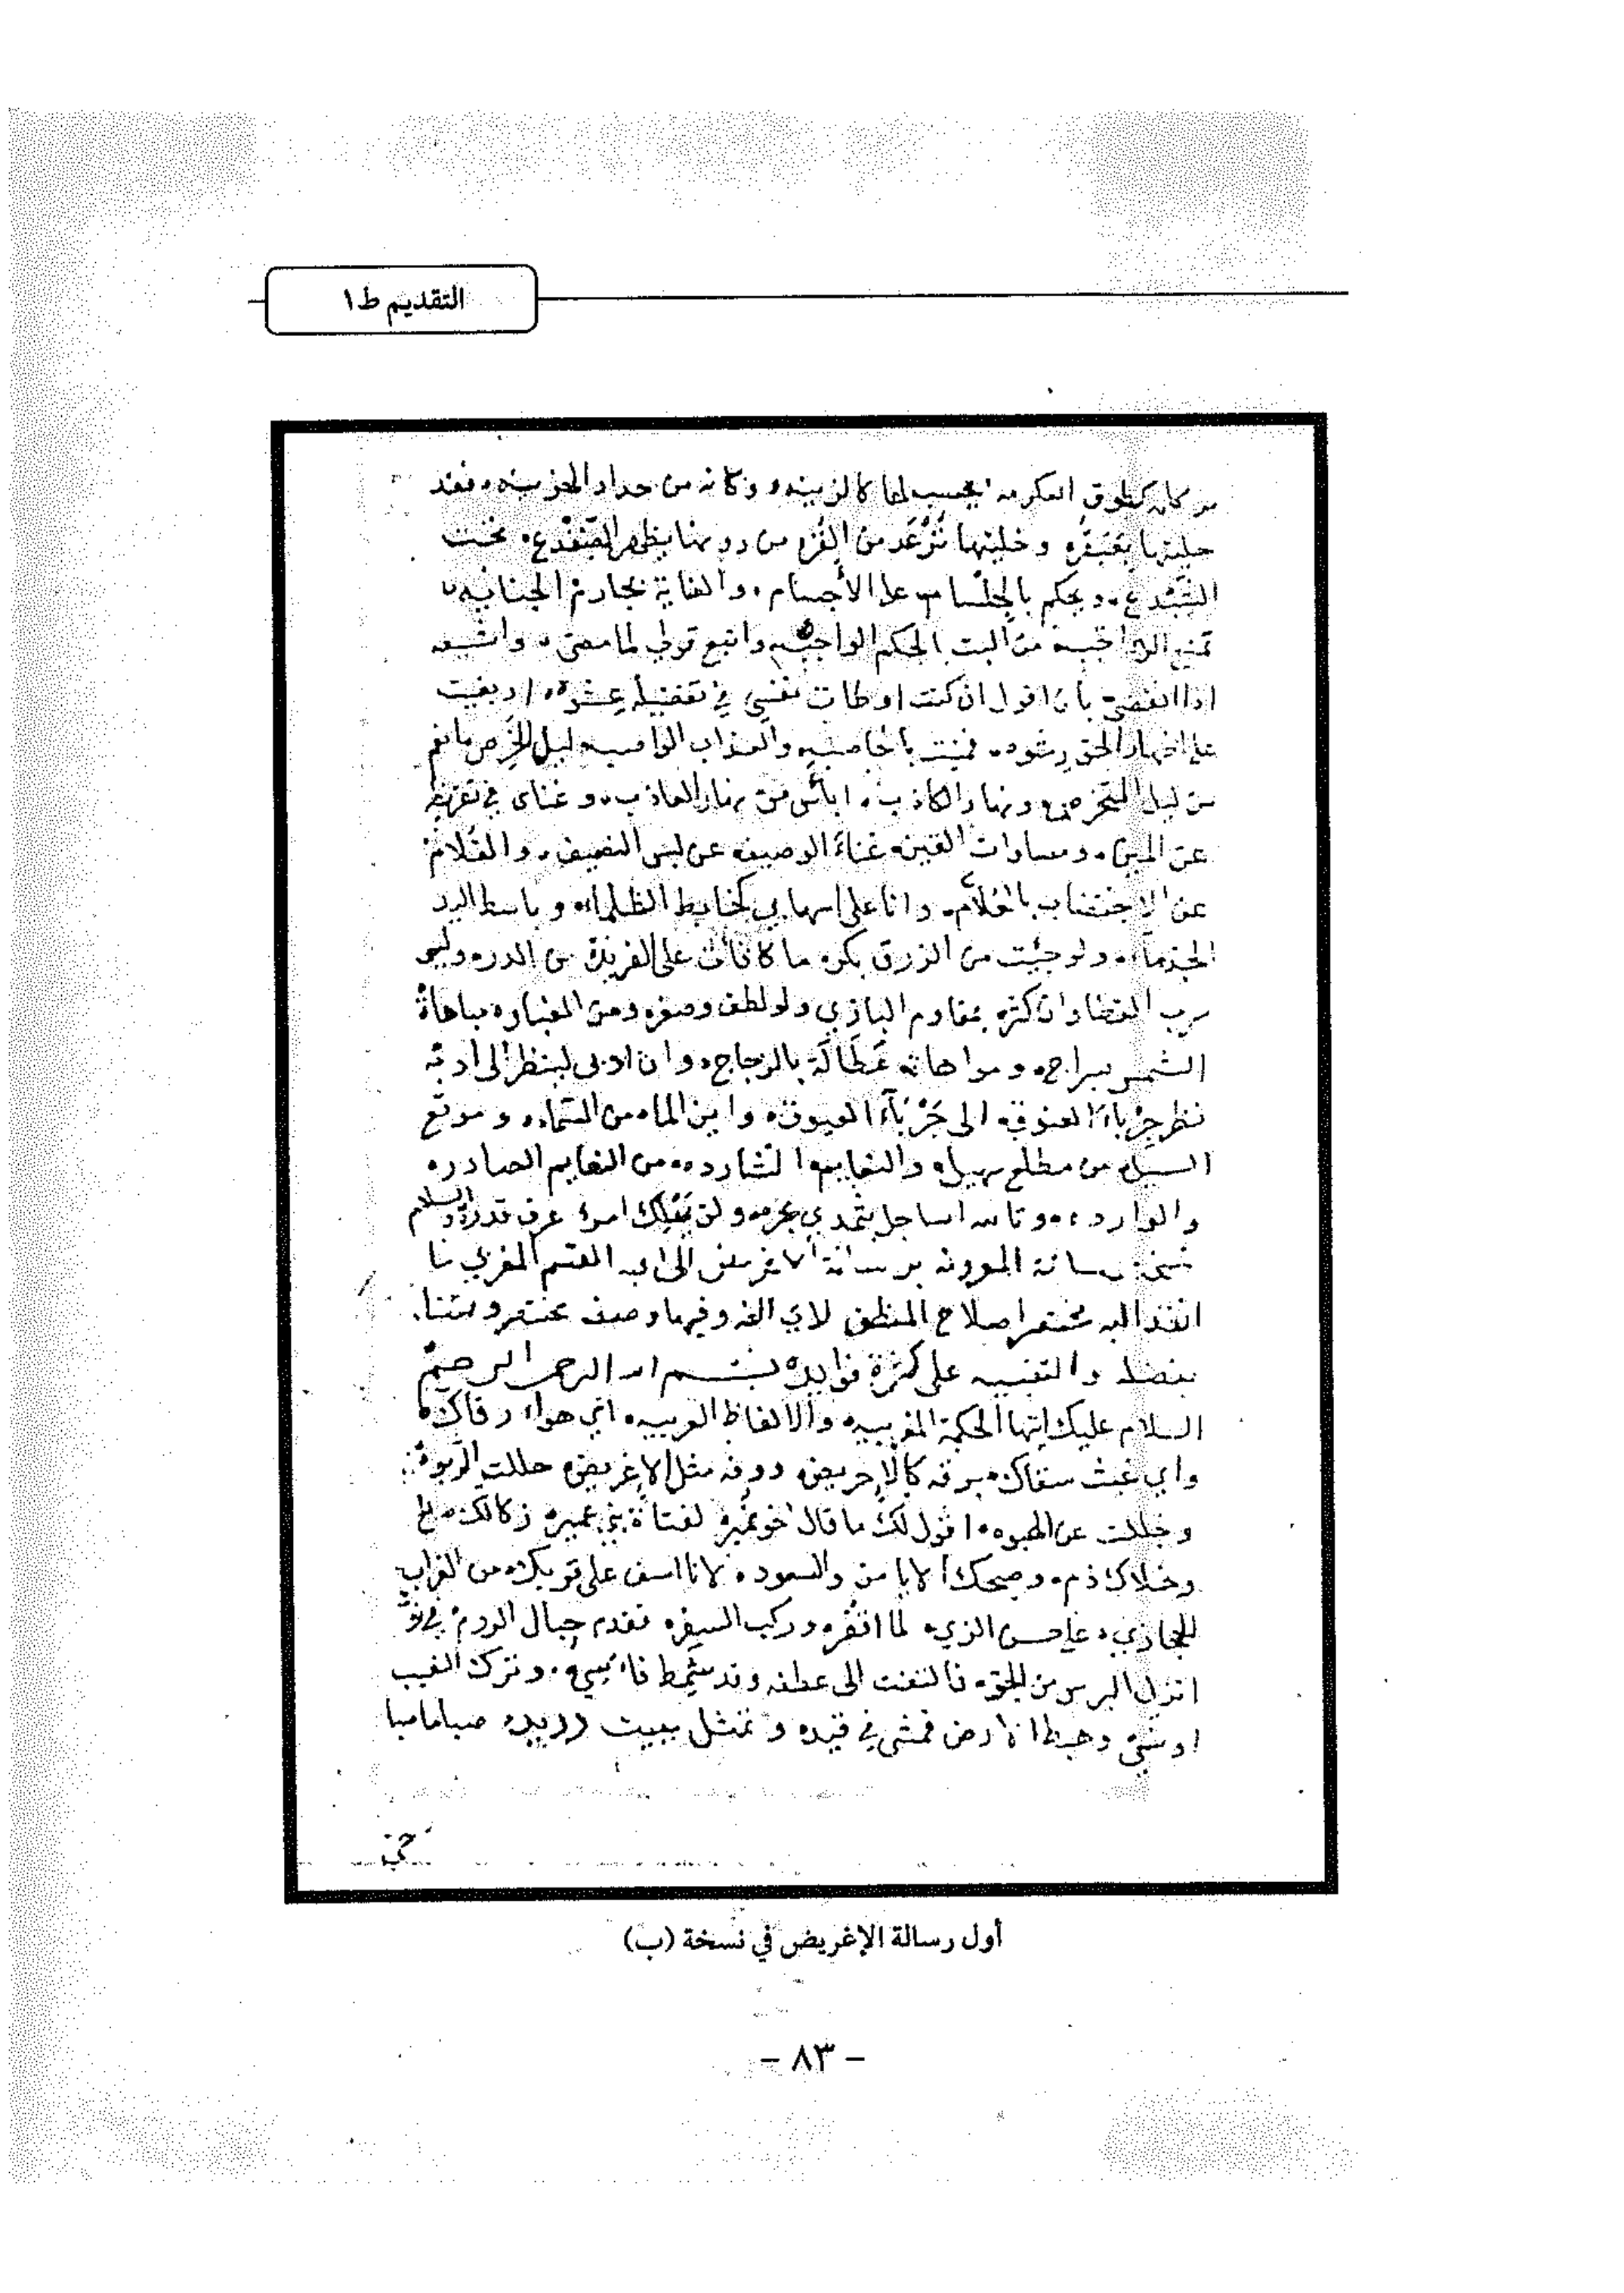 التقديم ط١
حليتها بعنبره وخلينها تزعد من القز من دونها بظهر الضفدع تحت
الشبدع ويحكم بالجلسام على الأجسام والغاية نجارم الجناية
تمنع الراجبه من البت الحكم الواجب واتبع قولي لما مضى واشيعه
اذا انقضى بان اقول ان كنت اوطات نفسي في تفضيله عشوه او بغيت
على اظهار الحق رشوه فمنيت بالحاصب والعذاب الواصب ليل المخرص بانم
من ليل المتخرص ونهار الكاذب ابأس من نهار العاذب وغناى في تقريظه
عن المين ومساوات القين غناء الوصيف عن لبس النصيف والغلام
عن الاختضاب بالعلام وانا على اسهابي كخابط الظلماء وباسط اليد
الجذماء ولو جيت من الزرق بكر ما كافأت على الفريدة من الدر وليس
سرب القطا وان كثر بمقاوم البازي ولو لطف وصغر ومن الغباره مباهاة
الشمس بسراج ومواهاته عطالة بالزجاج وان ادبى لينظر الى ادبه
نظر حرباء العنوق الى جرباء العيوق واين الماء من السماء وموقع
السيل من مطلع سهيل والنعايم الشارده من النعايم الصادره
والوارده وتالله اساجل بثمدي بحره ولن يهلك امرؤ عرف قدره والسلام
نسخة رسالته المعروفه برسالة الاغريض الى ابى القسم المغربي لما
انفذ اليه مختصر اصلاح المنطق لاي الفه وفيها وصف مختصره وثنا
بفضله والتنبيه على كثرة فوايده بسم الله الرحمن الرحيم
السلام عليك ايتها الحكمة المغربيه والالفاظ العربيه اي هواء رقاك
واي غيث سقاك برقه كالاحريض وودقه مثل الاغريض حللت الربوة
وجللت عن الهبوه اقول لك ما قال اخو نمير لفتاة بني عمير زكا لك صالح
وخلاك ذم وصبحك الايامن والسعود لانا اسف على قربك من الغراب
الحجازي على حسن الزي لما اقفر وركب السفر فقدم جبال الروم في نو
انزل البرس من الجو فالتفت الى عطفه وقد شمط فاسي وترك النعيب
او نسي وهبط الارض فمشى في قيد وتمثل ببيت دريد صبا ما صبا
أول رسالة الإغريض في نسخة (ب)
- ٨٣ -